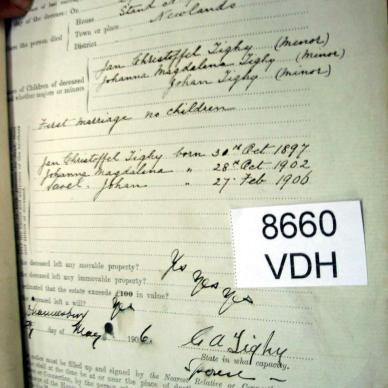 day of the decease: On
House Stand
Town or place Newlands
where the person died
District
Jan Christoffel Tighy (Minor)
Johanna Magdalena Tighy (Minor)
Johan Tighy (Minor)
of Children of deceased
whether majors or minors
First Marriage no children
Jan Christoffel Tighy born 30th Oct 1897
Johanna Magdalena " 28th Oct 1902
Johan " 27 Feb 1906
8660
VDH
deceased left any movable property? Yes
deceased left any immovable property? Yes
estimated that the estate exceeds £100 in value? Yes
deceased left a will? Yes
Johannesburg
day of May 1906.
C A Tighy
State in what capacity.
Spouse
must be filled up and signed by the Nearest Relative or
at or near the place of death